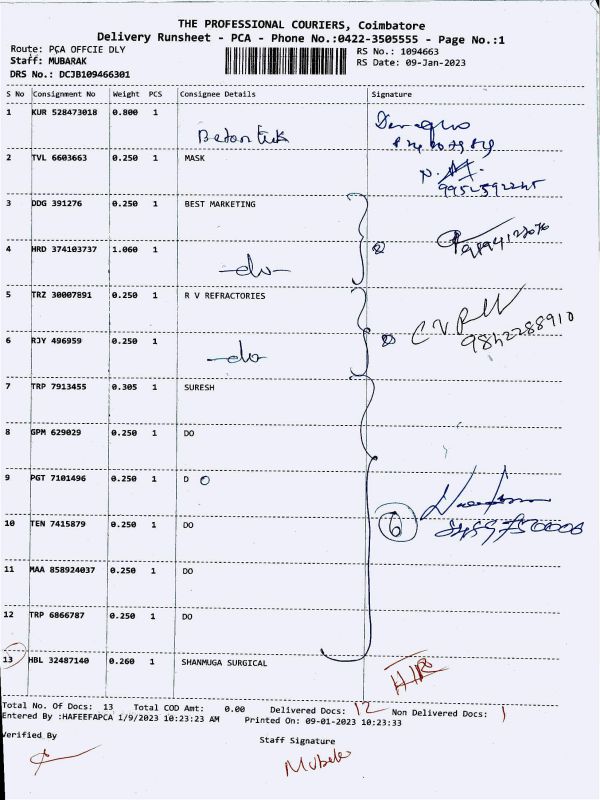 THE PROFESSIONAL COURIERS, Coimbatore
Delivery Runsheet - PCA - Phone No.:0422-3505555 - Page No.:1
Route: PCA OFFCIE DLY
RS No.: 1094663
Staff: MUBARAK
RS Date: 09-Jan-2023
DRS No.: DCJB109466301
S No Consignment No Weight PCS Consignee Details Signature
1 KUR 528473018 0.800 1
2 TVL 6603663 0.250 1 MASK
9952592245
3 DDG 391276 0.250 1 BEST MARKETING
4 HRD 374103737 1.060 1 -do-
② 9894123076
5 TRZ 30007891 0.250 1 R V REFRACTORIES
6 RJY 496959 0.250 1 -do-
② 9842288910
7 TRP 7913455 0.305 1 SURESH
8 GPM 629029 0.250 1 DO
9 PGT 7101496 0.250 1 D O
10 TEN 7415879 0.250 1 DO
⑥
11 MAA 858924037 0.250 1 DO
12 TRP 6866787 0.250 1 DO
13 HBL 32487140 0.260 1 SHANMUGA SURGICAL
Total No. Of Docs: 13 Total COD Amt: 0.00 Delivered Docs: 12 Non Delivered Docs: 1
Entered By :HAFEEFAPCA 1/9/2023 10:23:23 AM Printed On: 09-01-2023 10:23:33
Verified By
Staff Signature